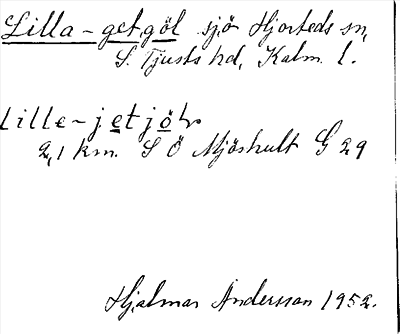 Lilla-getgöl sjö Hjorteds sn,
S. Tjusts hd, Kalm. l.
Lille-jetjöl
2,1 km. S Ö Mjöshult G 29
Hjalmar Andersson 1952.